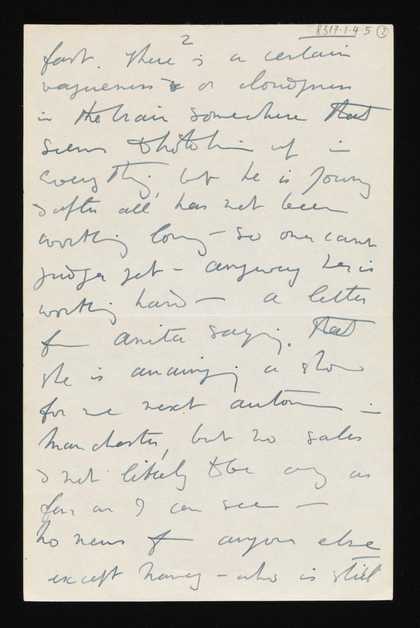 8317.1.4 5 2
2
fast. There is a certain
vagueness or cloudiness
in the train somewhere that
seems to hitch him up in
everything, but he is young
& after all has not been
working long – so one cant
judge yet – anyway he is
working hard – a letter
from Anita saying that
she is arranging a show
for me next autumn in
Manchester, but no sales
& not likely to be any as
far as I can see –
no news of anyone else
except Nancy – who is still